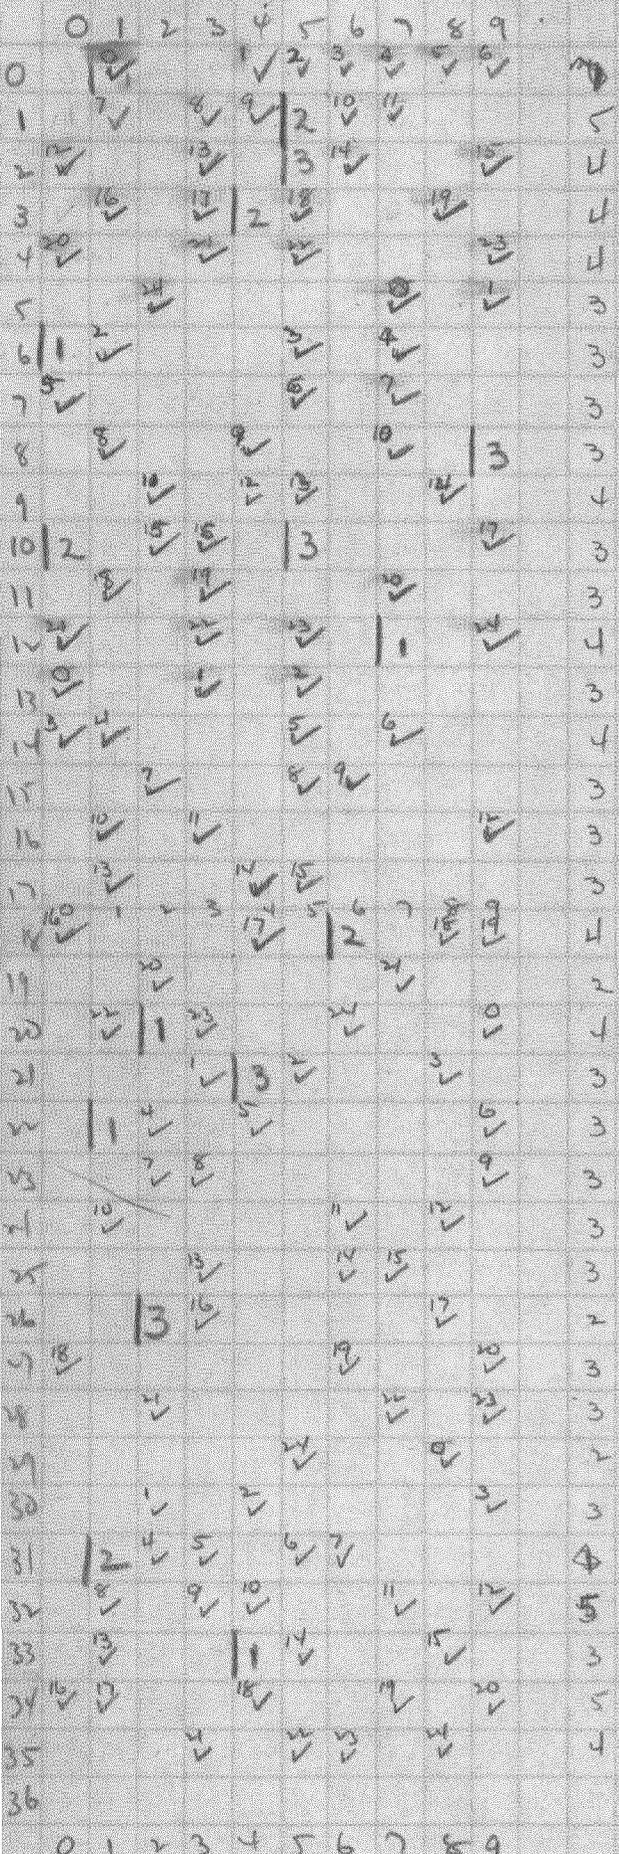 0 1 2 3 4 5 6 7 8 9
0 0 ✓ 1 ✓ 2 ✓ 3 ✓ 4 ✓ 5 ✓ 6 ✓
1 7 ✓ 8 ✓ 9 ✓ | 2 10 ✓ 11 ✓ 5
2 12 ✓ 13 ✓ | 3 14 ✓ 15 ✓ 4
3 16 ✓ 17 ✓ | 2 18 ✓ 19 ✓ 4
4 20 ✓ 21 ✓ 22 ✓ 23 ✓ 4
5 24 ✓ 0 ✓ 1 ✓ 3
6 | 1 2 ✓ 3 ✓ 4 ✓ 3
7 5 ✓ 6 ✓ 7 ✓ 3
8 8 ✓ 9 ✓ 10 ✓ | 3 3
9 11 ✓ 12 ✓ 13 ✓ 14 ✓ 4
10 | 2 15 ✓ 16 ✓ | 3 17 ✓ 3
11 18 ✓ 19 ✓ 20 ✓ 3
12 21 ✓ 22 ✓ 23 ✓ | 1 24 ✓ 4
13 0 ✓ 1 ✓ 2 ✓ 3
14 3 ✓ 4 ✓ 5 ✓ 6 ✓ 4
15 7 ✓ 8 ✓ 9 ✓ 3
16 10 ✓ 11 ✓ 12 ✓ 3
17 13 ✓ 14 ✓ 15 ✓ 3
0 1 2 3 4 5 6 7 8 9
18 16 ✓ 17 ✓ | 2 18 ✓ 19 ✓ 4
19 20 ✓ 21 ✓ 2
20 22 ✓ | 1 23 ✓ 24 ✓ 0 ✓ 4
21 1 ✓ | 3 2 ✓ 3 ✓ 3
22 | 1 4 ✓ 5 ✓ 6 ✓ 3
23 7 ✓ 8 ✓ 9 ✓ 3
24 10 ✓ 11 ✓ 12 ✓ 3
25 13 ✓ 14 ✓ 15 ✓ 3
26 | 3 16 ✓ 17 ✓ 2
27 18 ✓ 19 ✓ 20 ✓ 3
28 21 ✓ 22 ✓ 23 ✓ 3
29 24 ✓ 0 ✓ 2
30 1 ✓ 2 ✓ 3 ✓ 3
31 | 2 4 ✓ 5 ✓ 6 ✓ 7 ✓ 4
32 8 ✓ 9 ✓ 10 ✓ 11 ✓ 12 ✓ 5
33 13 ✓ | 1 14 ✓ 15 ✓ 3
34 16 ✓ 17 ✓ 18 ✓ 19 ✓ 20 ✓ 5
35 21 ✓ 22 ✓ 23 ✓ 24 ✓ 4
36
0 1 2 3 4 5 6 7 8 9